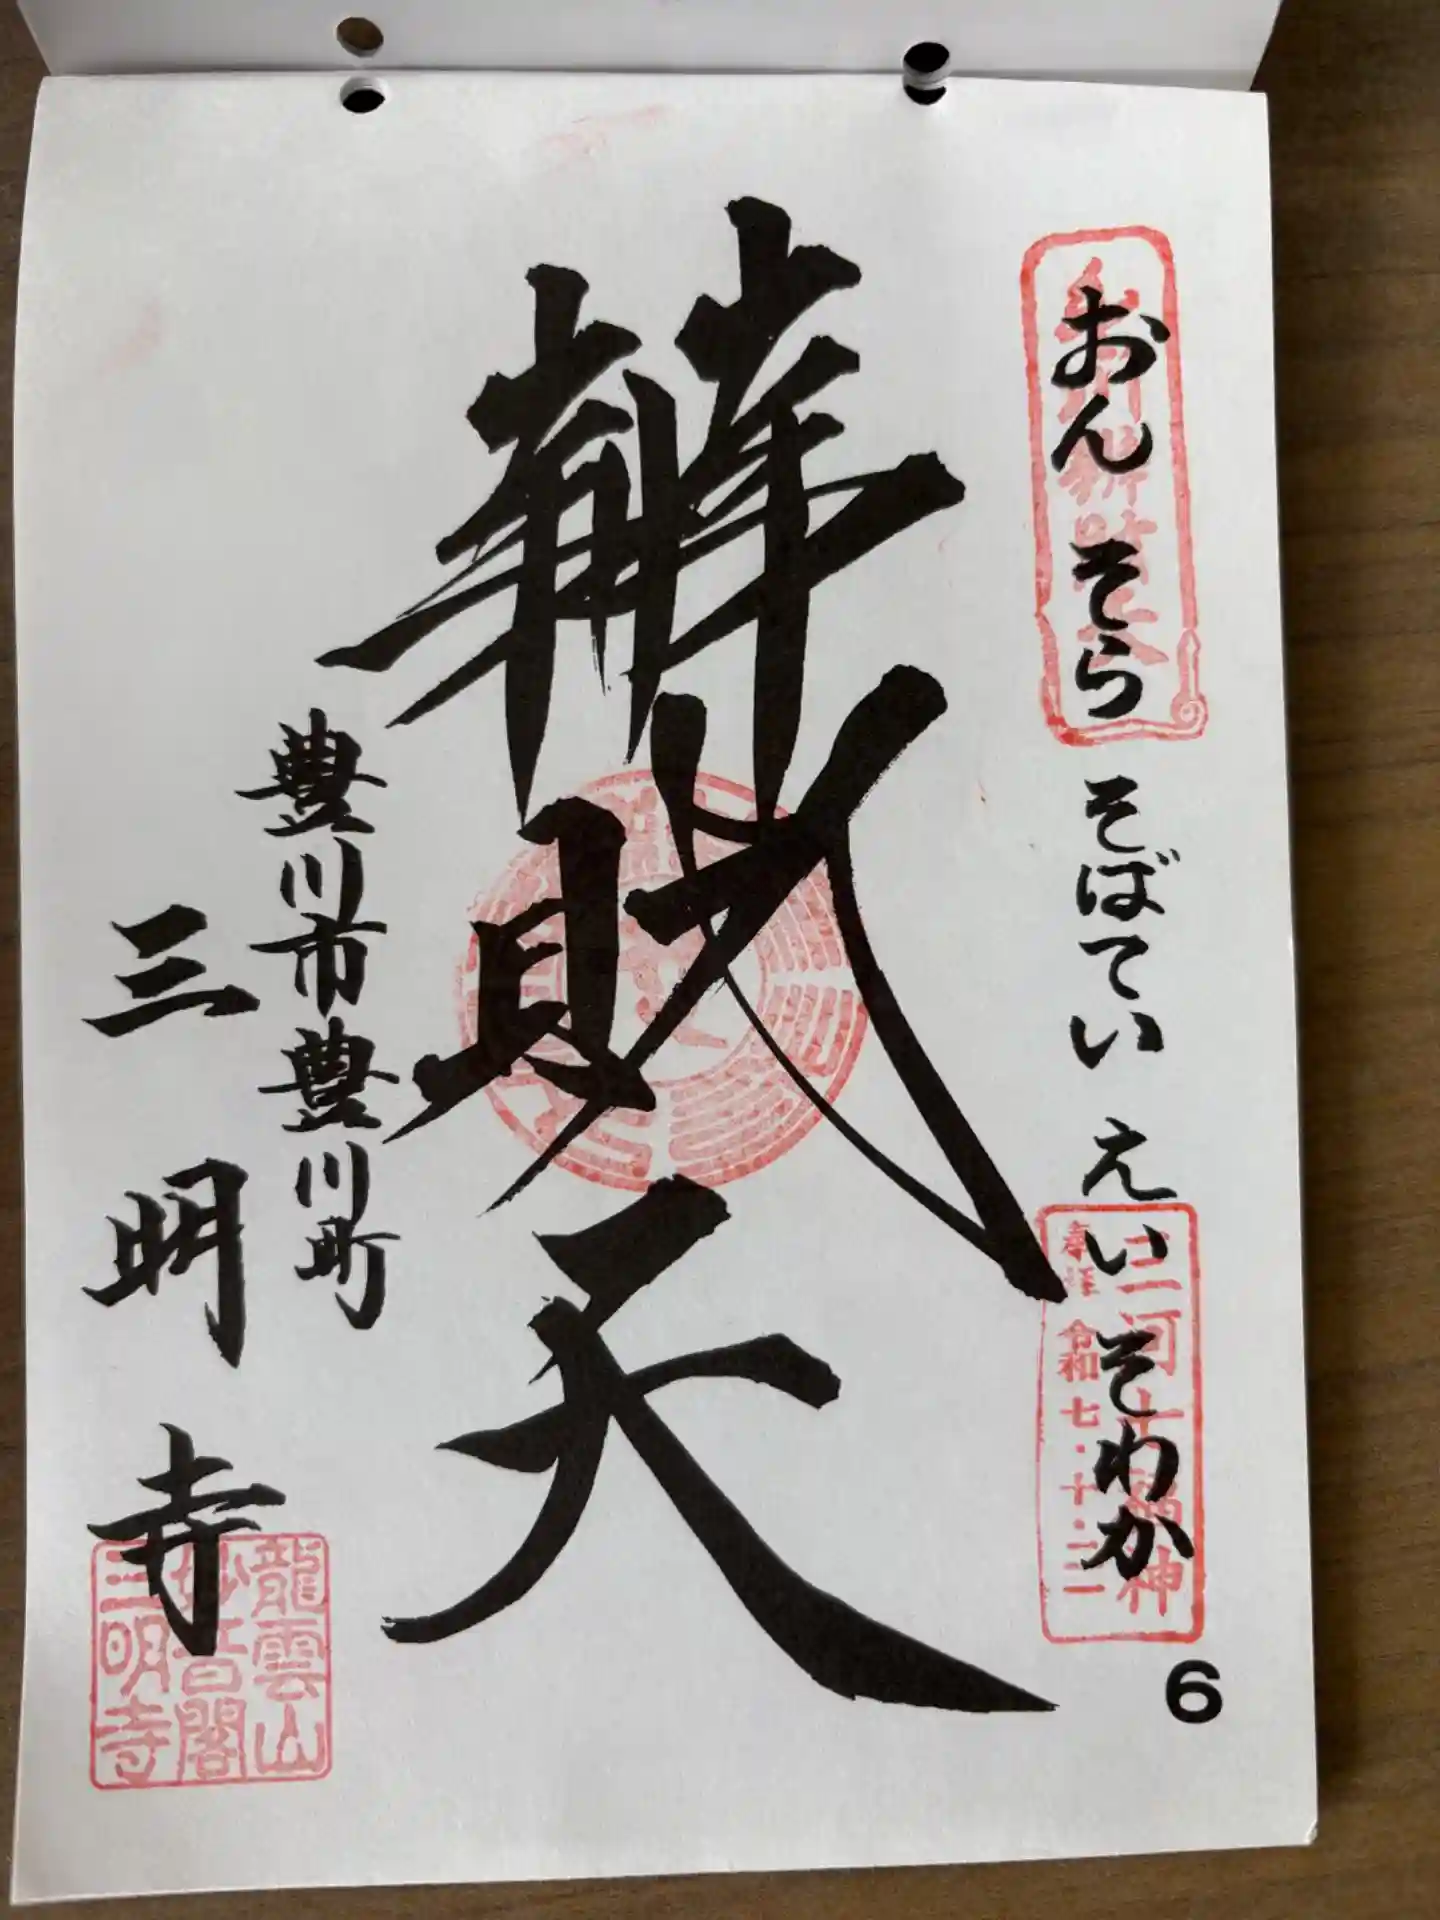 おん そら そばてい えい そわか
三河七福神
奉拝 令和七・十・二二
辨財天
豊川市豊川町
三明寺
龍雲山
妙音閣
三明寺
6